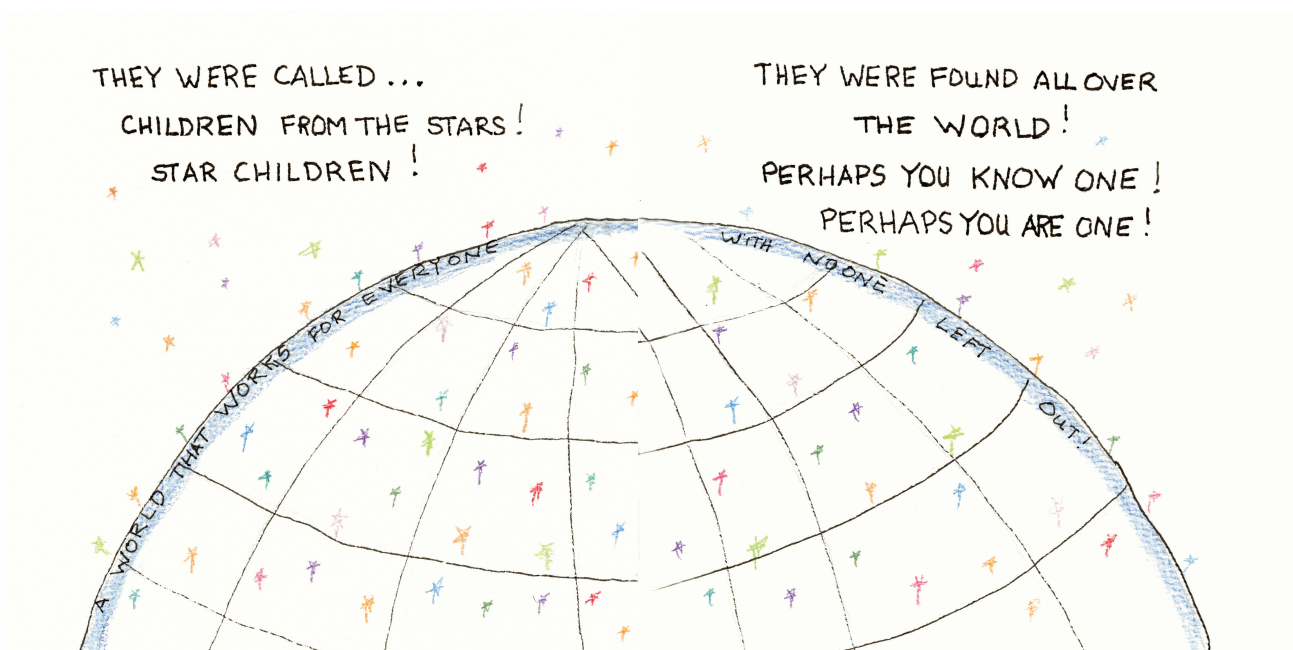 THEY WERE CALLED ...
CHILDREN FROM THE STARS!
STAR CHILDREN!
THEY WERE FOUND ALL OVER
THE WORLD!
PERHAPS YOU KNOW ONE!
PERHAPS YOU ARE ONE!
A WORLD THAT WORKS FOR EVERYONE
WITH NOONE LEFT OUT!